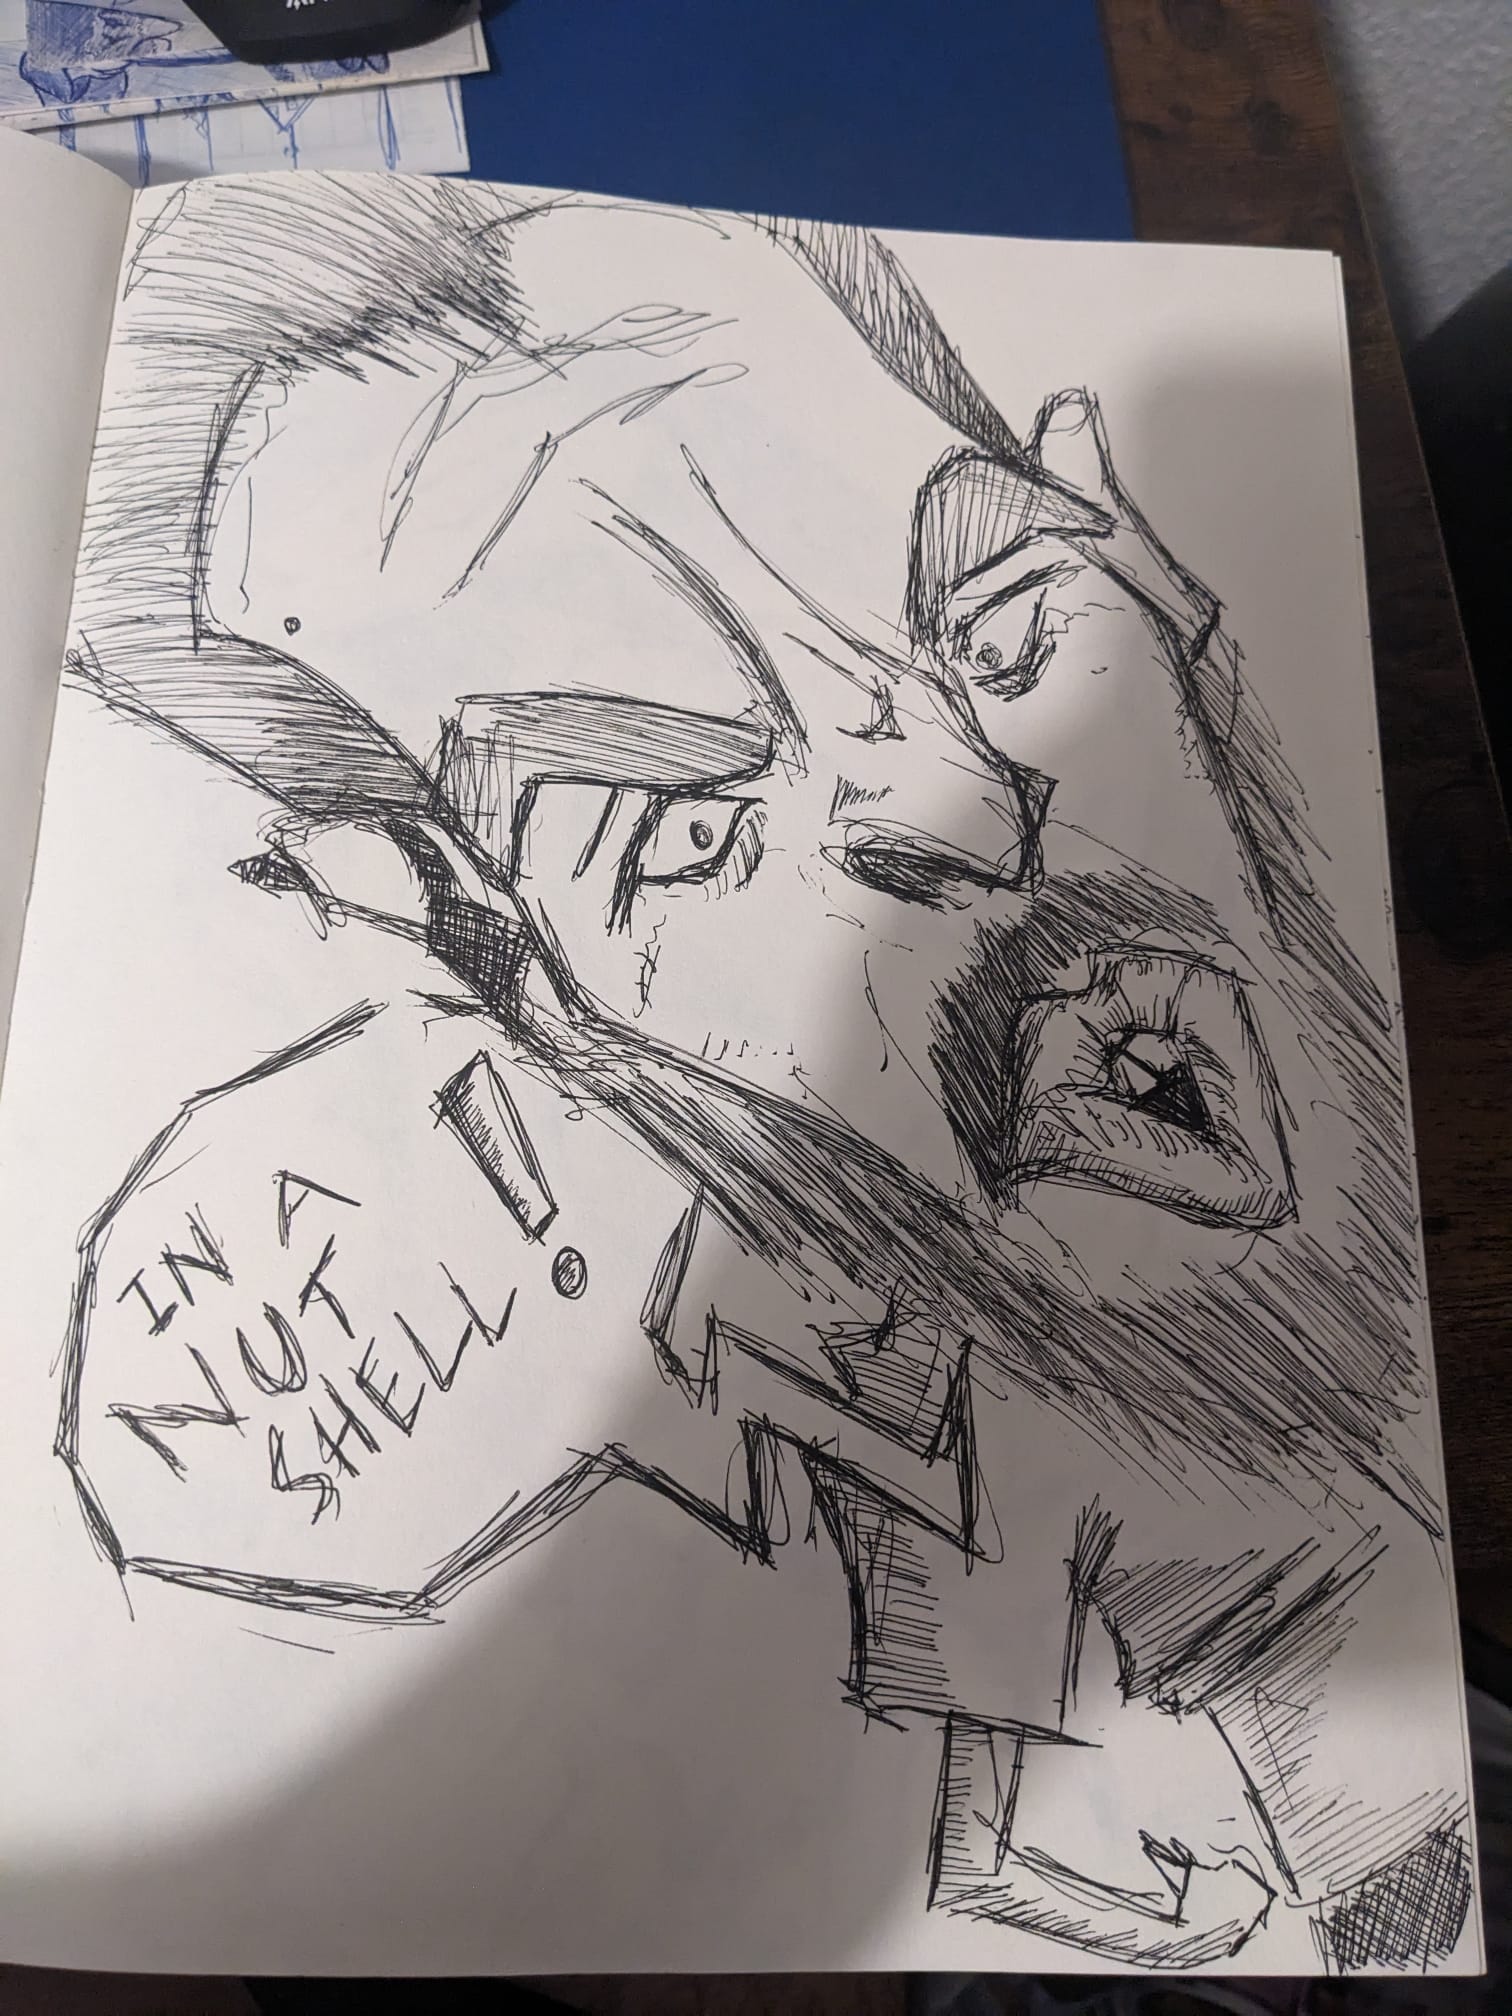 IN A
NUT
SHELL!